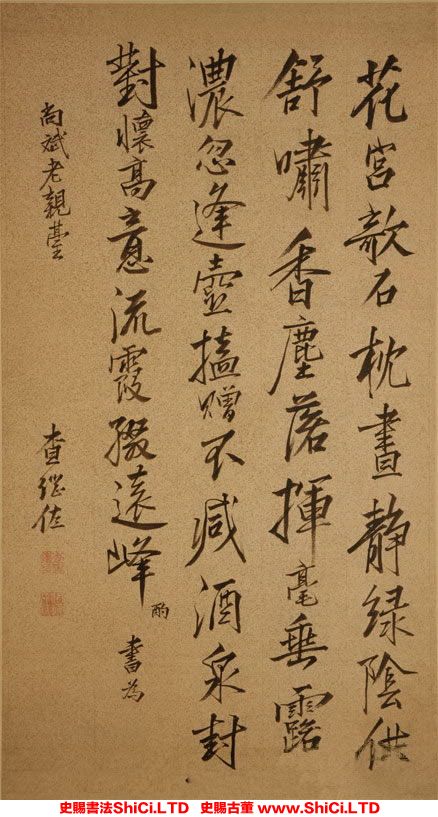 花宮欹石枕晝靜綠陰供
舒嘯香塵落揮毫垂露
濃忽逢壺榼贈不減酒泉封
對懷高意流霞綴遠峰 酌 書為
尚斌老親臺
查繼佐
史賜書法ShiCi.LTD 史賜古董 www.ShiCi.LTD